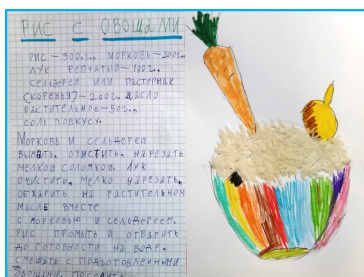 РИС С ОВОЩАМИ
РИС – 300г., МОРКОВЬ – 200г.,
ЛУК РЕПЧАТЫЙ – 100г.,
СЕЛЬДЕРЕЙ ИЛИ ПАСТЕРНАК
(КОРЕНЬЯ) – 200г., МАСЛО
РАСТИТЕЛЬНОЕ – 50г.,
СОЛЬ ПО ВКУСУ.
МОРКОВЬ И СЕЛЬДЕРЕЙ
ВЫМЫТЬ, ОЧИСТИТЬ, НАРЕЗАТЬ
МЕЛКОЙ СОЛОМКОЙ. ЛУК
ОЧИСТИТЬ, МЕЛКО НАРЕЗАТЬ,
ОБЖАРИТЬ НА РАСТИТЕЛЬНОМ
МАСЛЕ ВМЕСТЕ
С МОРКОВЬЮ И СЕЛЬДЕРЕЕМ.
РИС ПРОМЫТЬ И ОТВАРИТЬ
ДО ГОТОВНОСТИ НА ВОДЕ,
СМЕШАТЬ С ПОДГОТОВЛЕННЫМИ
ОВОЩАМИ, ПОСОЛИТЬ